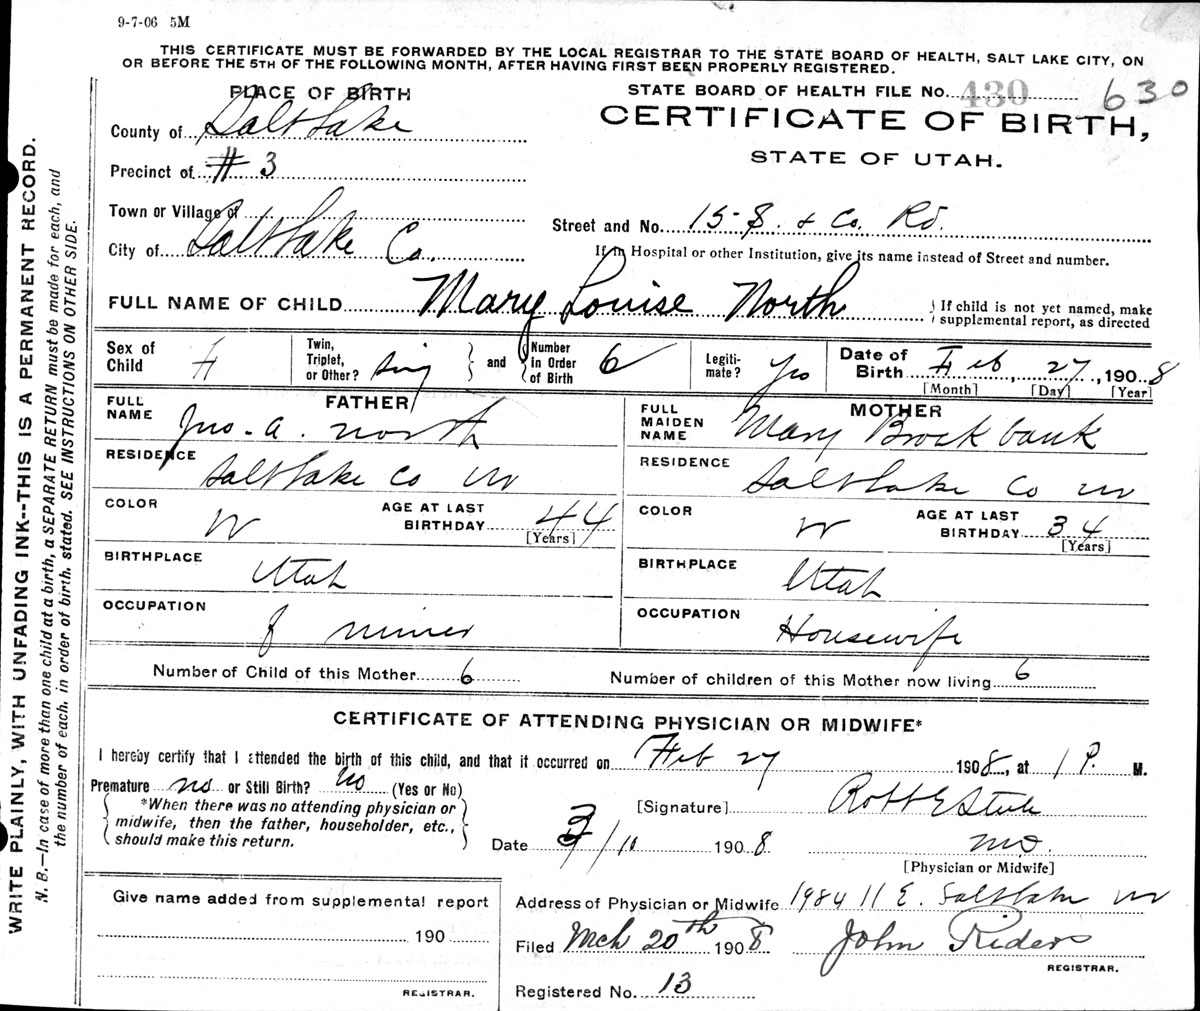 9-7-06 5M
THIS CERTIFICATE MUST BE FORWARDED BY THE LOCAL REGISTRAR TO THE STATE BOARD OF HEALTH, SALT LAKE CITY, ON
OR BEFORE THE 5TH OF THE FOLLOWING MONTH, AFTER HAVING FIRST BEEN PROPERLY REGISTERED.
PLACE OF BIRTH
STATE BOARD OF HEALTH FILE No. 430 630
CERTIFICATE OF BIRTH,
STATE OF UTAH.
County of Salt Lake
Precinct of # 3
Town or Village of
City of Salt Lake Co.
Street and No. 15 S. & Co. Rd.
If in Hospital or other Institution, give its name instead of Street and number.
FULL NAME OF CHILD Mary Louise North
If child is not yet named, make
supplemental report, as directed
Sex of Child F
Twin, Triplet, or Other? sing and Number in Order of Birth 6
Legiti-mate? Yes
Date of Birth Feb, 27, 1908
[Month] [Day] [Year]
FATHER
FULL NAME Jno. A. North
RESIDENCE Salt Lake Co
COLOR W
AGE AT LAST BIRTHDAY 44
[Years]
BIRTHPLACE Utah
OCCUPATION miner
MOTHER
FULL MAIDEN NAME Mary Brockbank
RESIDENCE Salt Lake Co
COLOR W
AGE AT LAST BIRTHDAY 34
[Years]
BIRTHPLACE Utah
OCCUPATION Housewife
Number of Child of this Mother 6
Number of children of this Mother now living 6
CERTIFICATE OF ATTENDING PHYSICIAN OR MIDWIFE*
I hereby certify that I attended the birth of this child, and that it occurred on Feb 27 1908, at 1 P. M.
Premature no or Still Birth? No (Yes or No)
*When there was no attending physician or
midwife, then the father, householder, etc.,
should make this return.
[Signature] Robt E Steele
MD.
[Physician or Midwife]
Date 3/10 1908
Give name added from supplemental report
190
REGISTRAR.
Address of Physician or Midwife 1984 11 E. Salt Lake
Filed Mch 20th 1908 John Riders
REGISTRAR.
Registered No. 13
WRITE PLAINLY, WITH UNFADING INK--THIS IS A PERMANENT RECORD.
N. B.—In case of more than one child at a birth, a SEPARATE RETURN must be made for each, and
the number of each, in order of birth, stated. SEE INSTRUCTIONS ON OTHER SIDE.